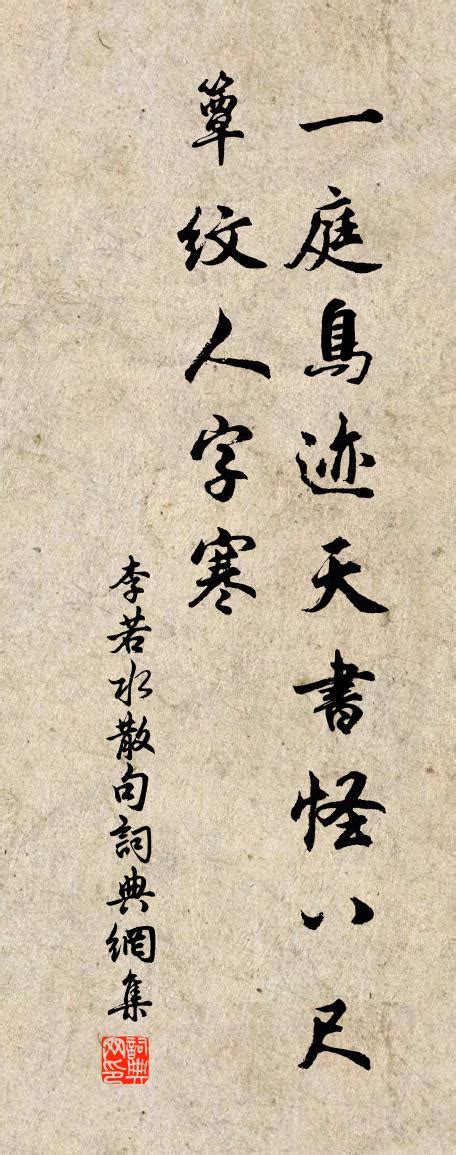 一庭鳥迹天書怪八尺
簟紋人字寒
李若水散句詞典網集
詞典
网印